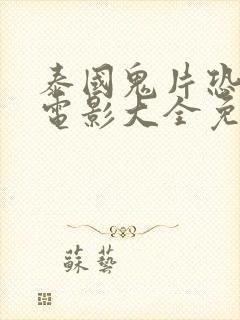 泰國鬼片恐
電影大全免
蘇藝